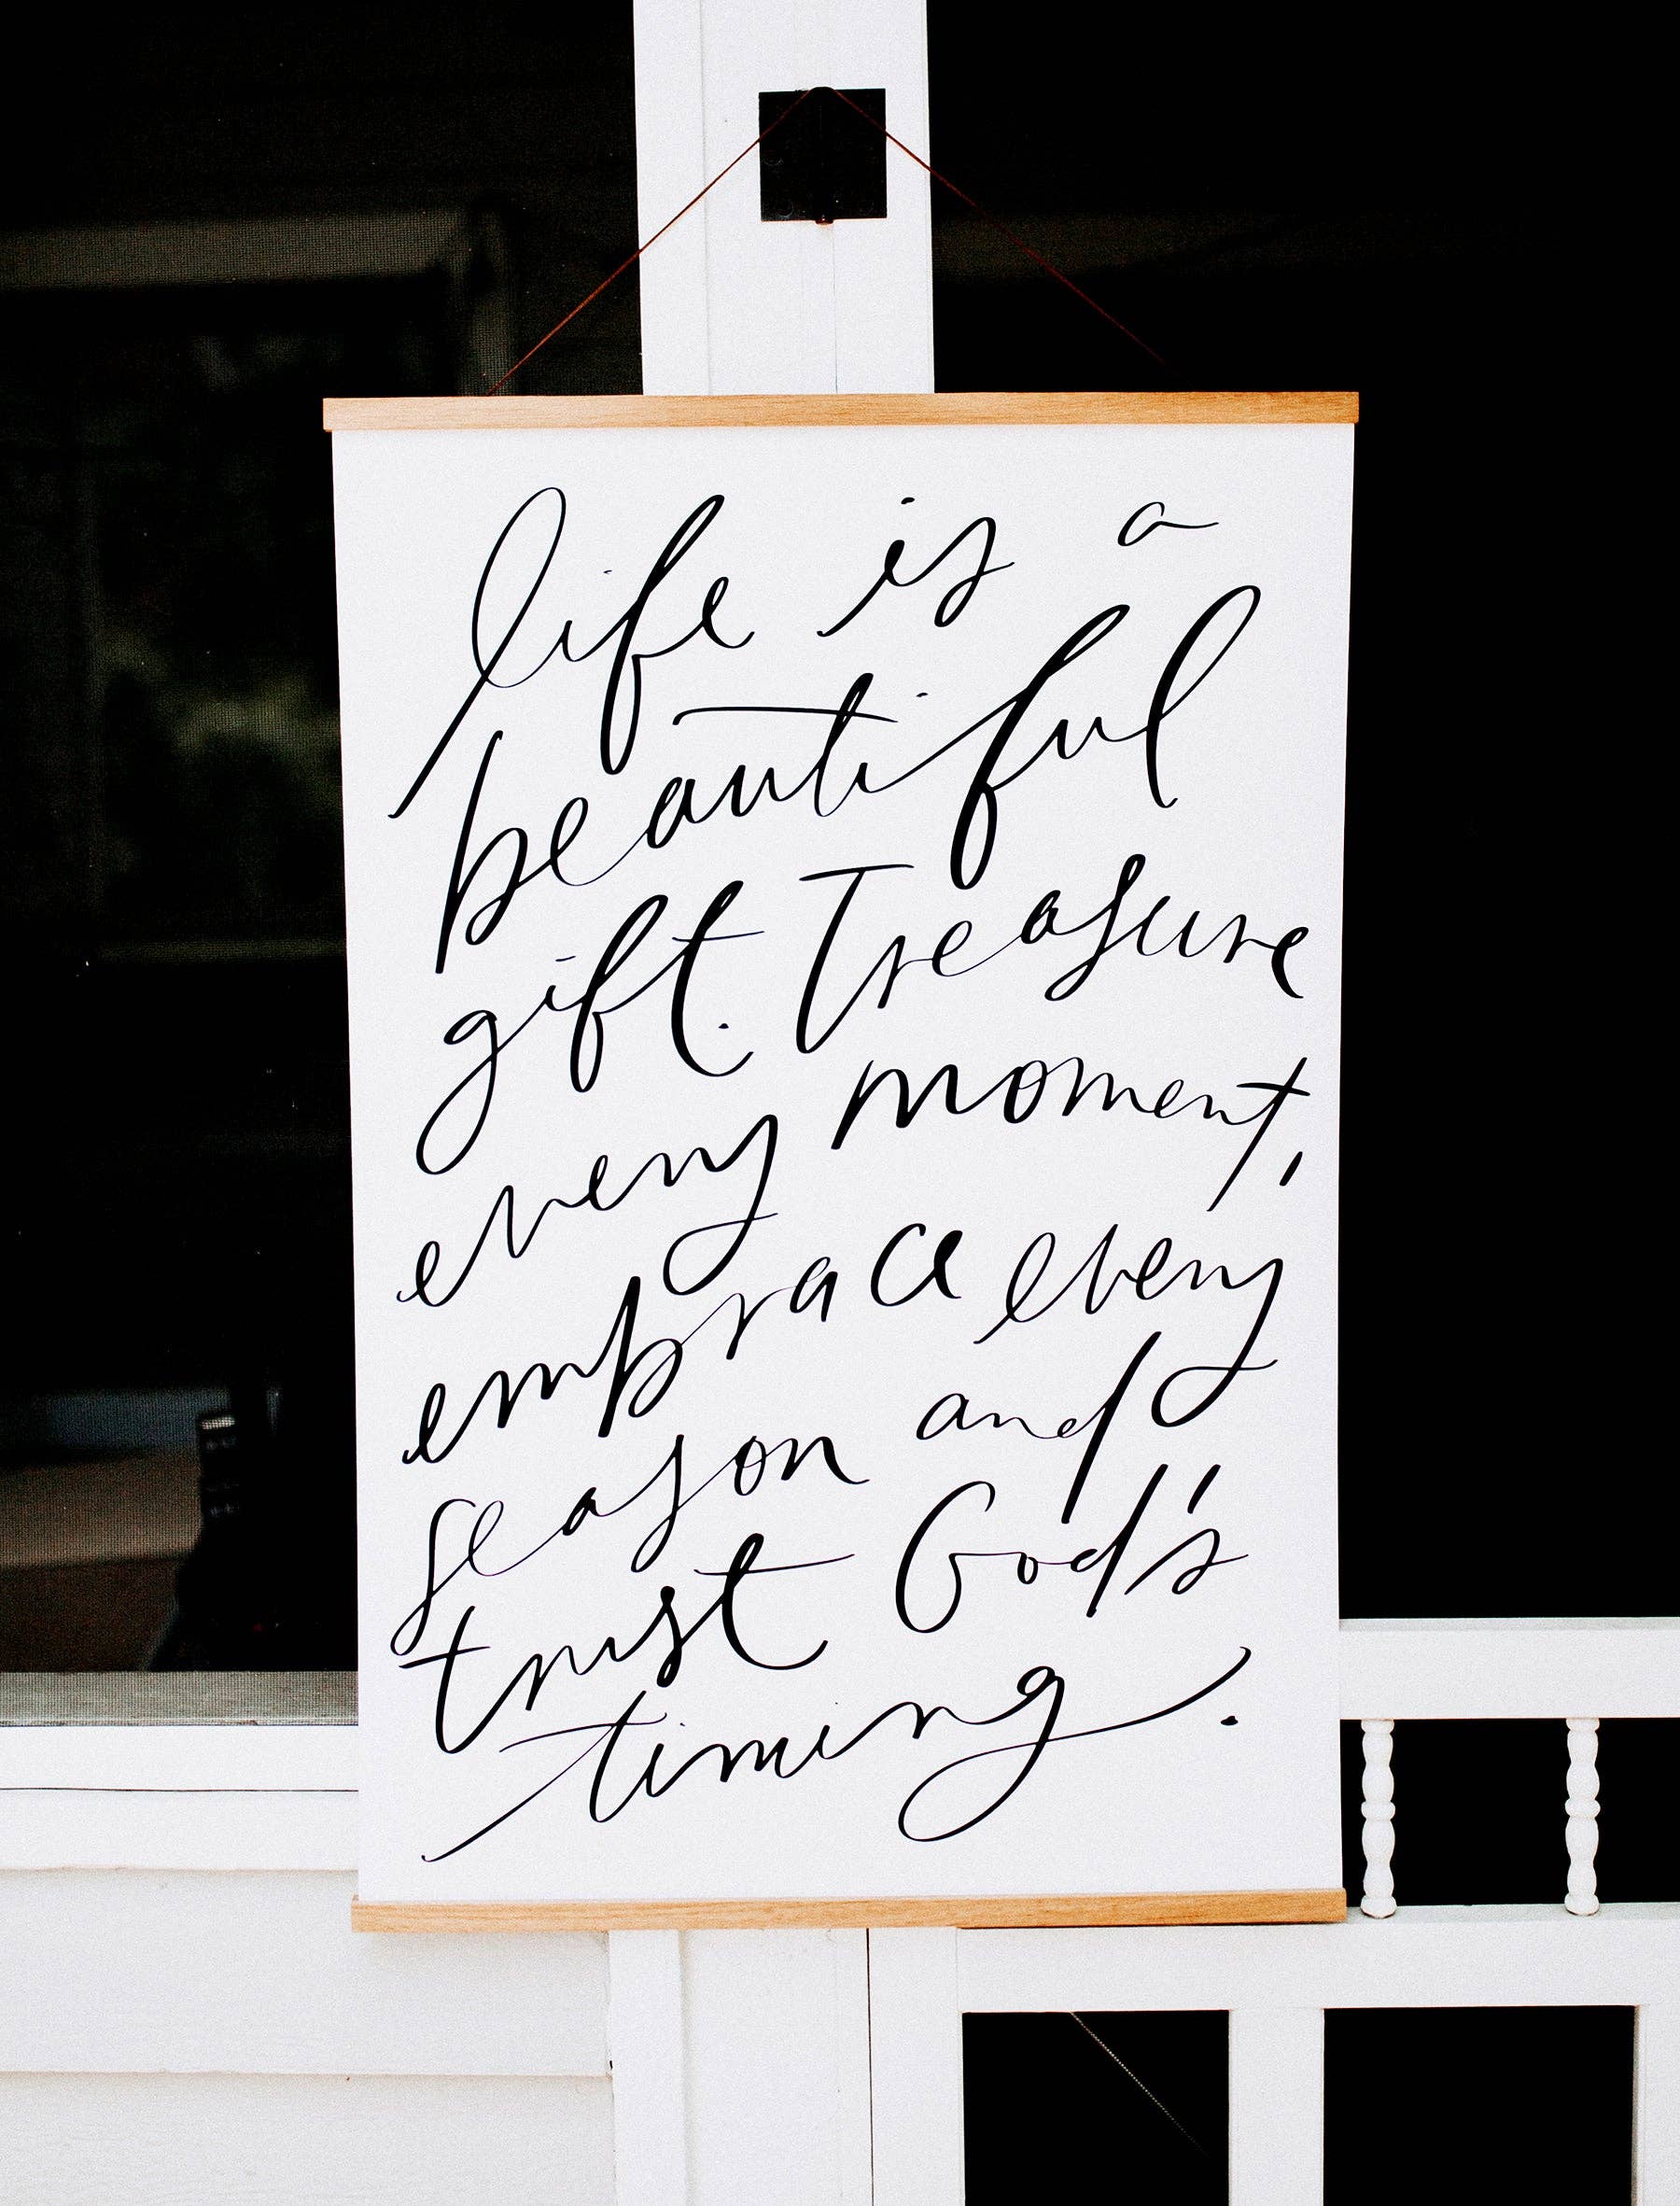 life is a
beautiful
gift. Treasure
every moment,
embrace every
season and
trust God's
timing.